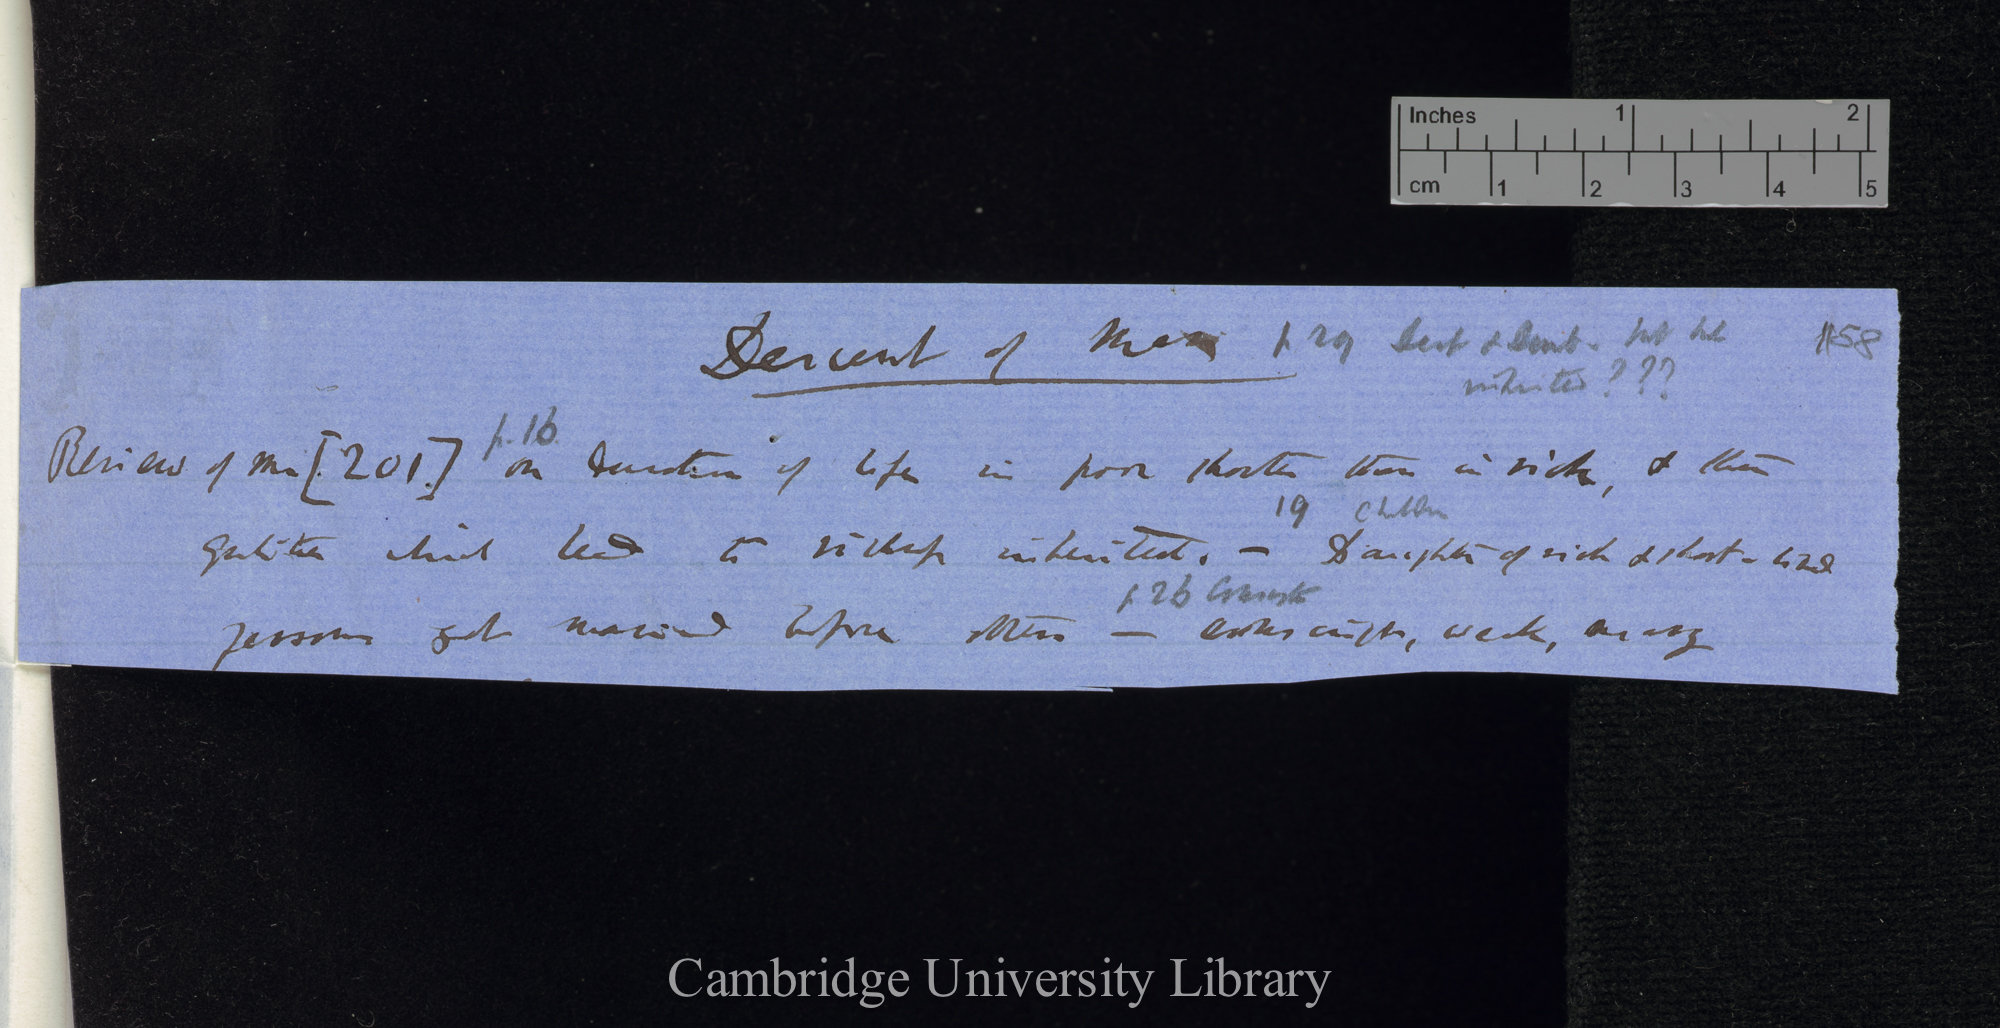 Inches 1 2
cm 1 2 3 4 5
Descent of Man p. 29 Deaf & Dumb - not
inherited ??? 158
p. 16
Review of Man [201] on duration of life in poor shorter than in rich, & then
19 children
qualities which lead to riches inherited. — Daughters of rich & short-lived
p. 26 Consumpt
persons get married before others — weak, many
Cambridge University Library